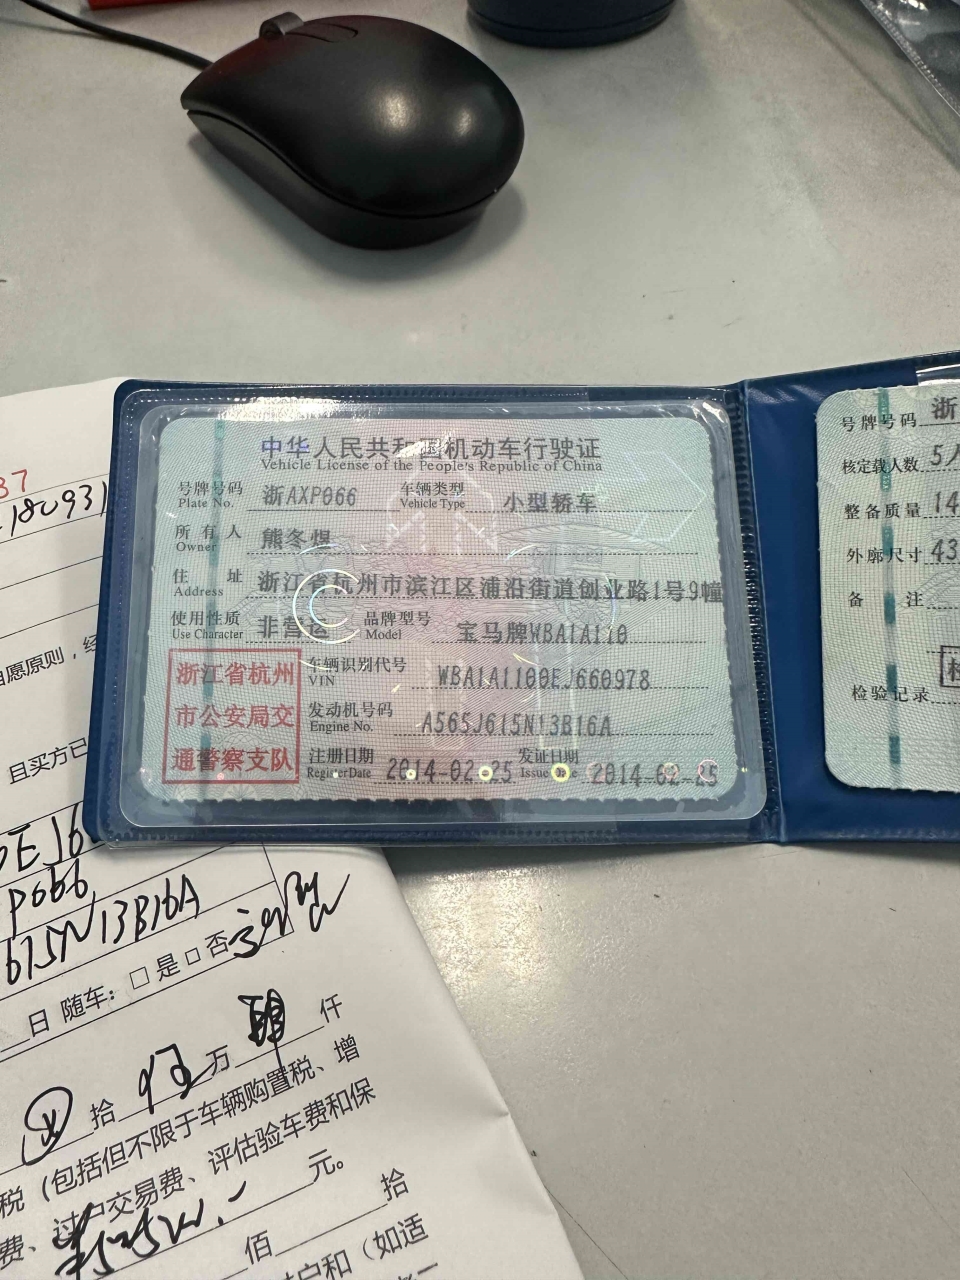 中华人民共和国机动车行驶证
Vehicle License of the People's Republic of China
号牌号码 浙AXP066 车辆类型 小型轿车
Plate No. Vehicle Type
所有人 熊冬焊
Owner
住址 浙江省杭州市滨江区浦沿街道创业路1号9幢
Address
使用性质 非营运 品牌型号 宝马牌WBA1A110
Use Character Model
浙江省杭州
市公安局交
通警察支队
车辆识别代号 WBA1A1100EJ660978
VIN
发动机号码 A565J615N13B16A
Engine No.
注册日期 2014-02-25 发证日期 2014-02-25
Register Date Issue Date
号牌号码 浙
核定载人数 5人
整备质量 14
外廓尺寸 43
备注
检验记录
37
180931
自愿原则，经
且买方已
EJ6
P066
615N13B16A
日 随车：□是□否
拾 万 仟
税（包括但不限于车辆购置税、增
费、过户交易费、评估验车费和保
元。
佰 拾
户和（如适